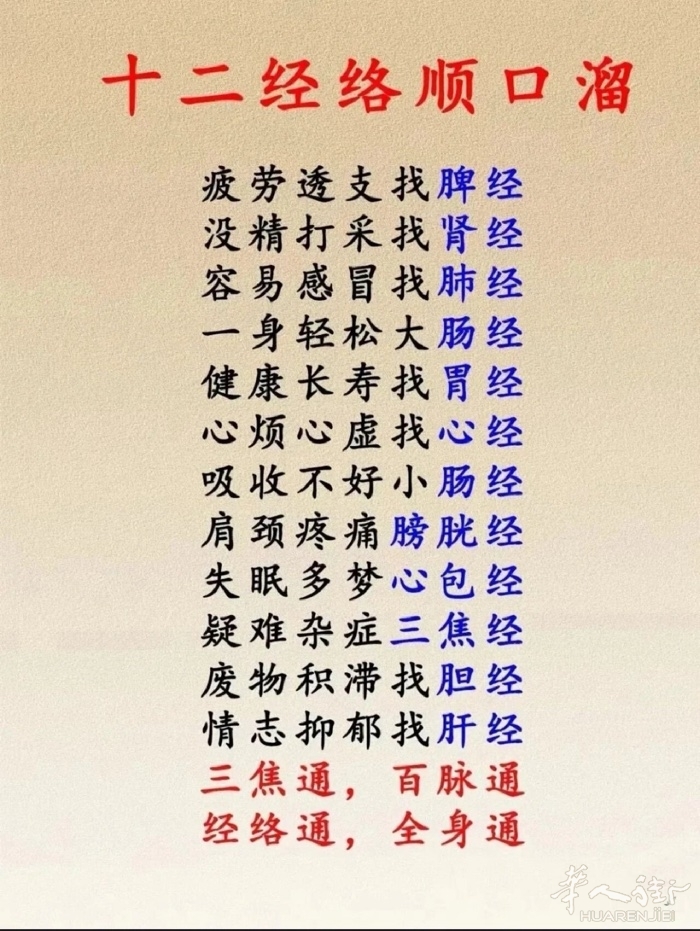 十二经络顺口溜
疲劳透支找脾经
没精打采找肾经
容易感冒找肺经
一身轻松大肠经
健康长寿找胃经
心烦心虚找心经
吸收不好小肠经
肩颈疼痛膀胱经
失眠多梦心包经
疑难杂症三焦经
废物积滞找胆经
情志抑郁找肝经
三焦通，百脉通
经络通，全身通
华人街
HUARENJIEI